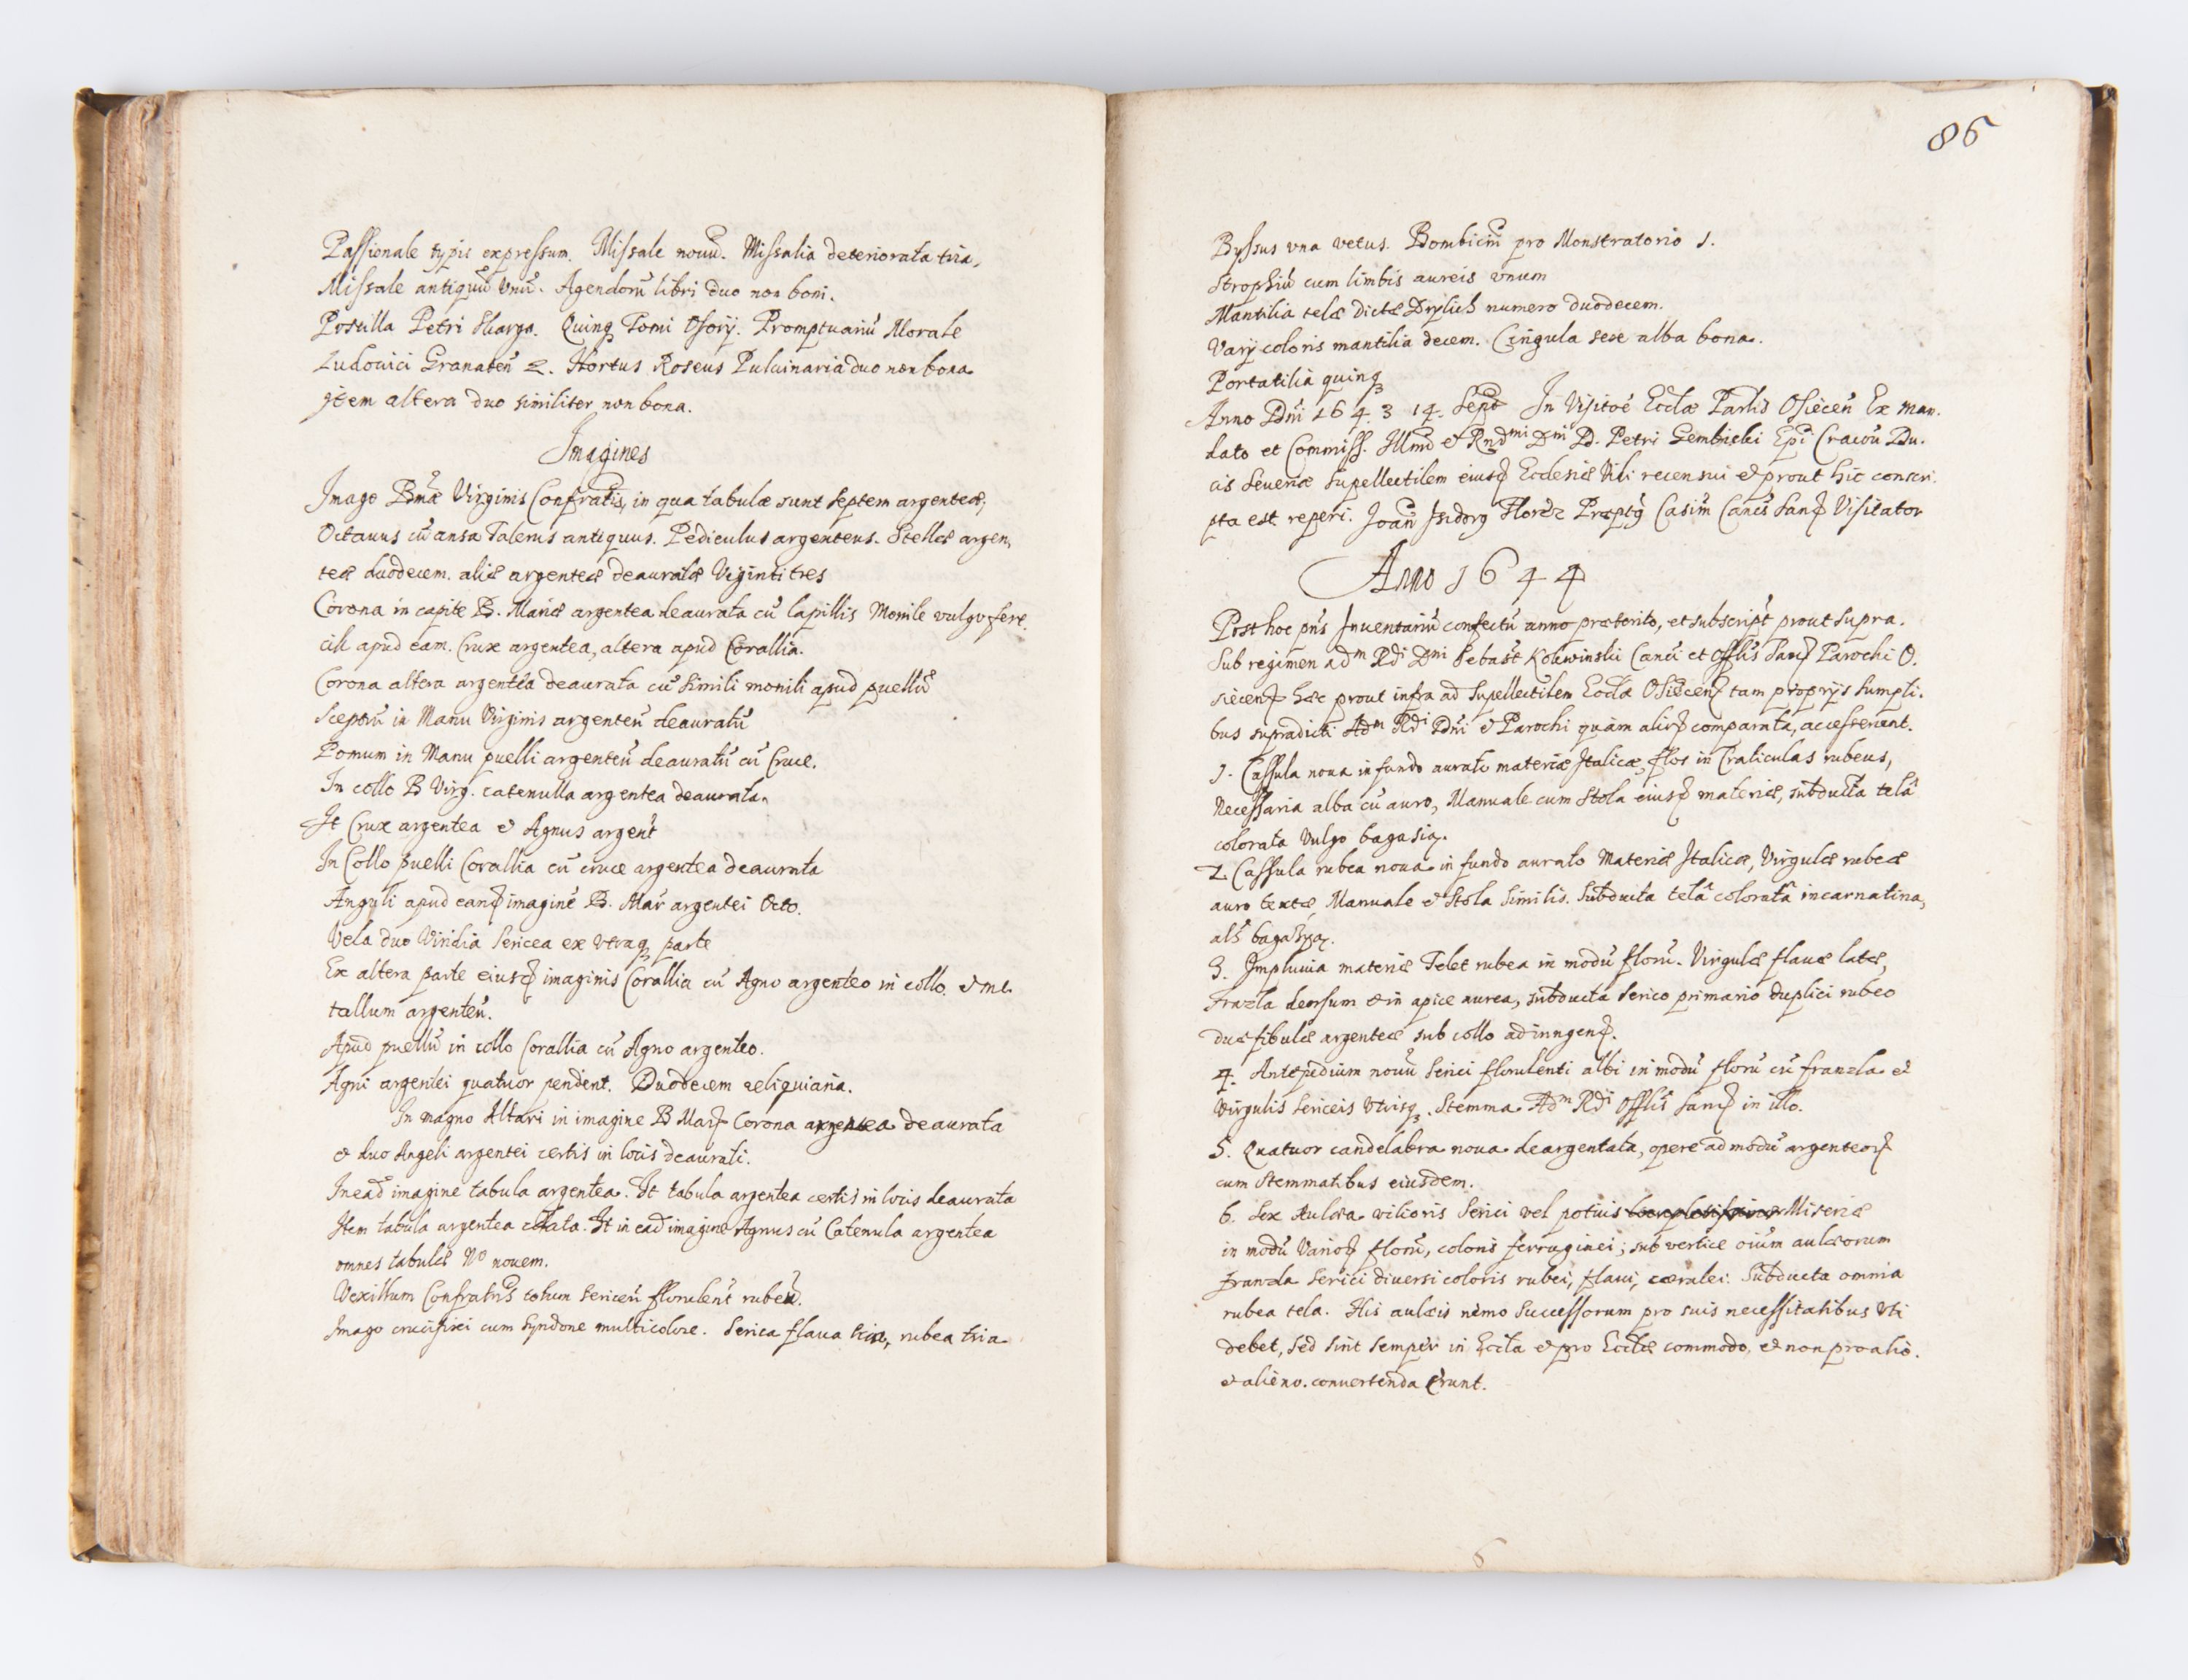 Passionale typis expressum. Missale nouũ. Missalia deteriorata tria,
Missale antiquũ vnũ. Agendorũ libri duo non boni.
Postilla Petri Skarga. Quinq3 Tomi Osorij. Promptuariũ Morale
Ludouici Granateñ 2. Hortus Roseus Puluinaria duo non bona
Item altera duo similiter non bona.
Imagines
Imago Bmæ Virginis Confratis, in qua tabulæ sunt septem argenteæ;
Octauus cũ ansa Talerus antiquus. Pediculus argenteus. Stellæ argen,
teæ duodecem. aliæ argenteæ deauratæ Viginti tres
Corona in capite B. Mariæ argentea deaurata cũ lapillis Monile vulgo fere,
cih apud eam. Crux argentea, altera apud Corallia.
Corona altera argentea deaurata cũ simili monili apud puellũ
Sceptrũ in Manu Virginis argenteũ deauratũ
Pomum in Manu puelli argenteũ deauratũ cũ Cruce.
In collo B Virg. catenulla argentea deaurata.
It Crux argentea & Agnus argent
In Collo puelli Corallia cũ cruce argentea deaurata
Anguli apud eand imaginẽ B. Mar argentei Octo.
Vela duo Viridia Sericea ex vtraq3 parte
Ex altera parte eiusd imaginis Corallia cũ Agno argenteo in collo. & me
tallum argenteũ.
Apud puellũ in collo Corallia cũ Agno argenteo.
Agni argentei quatuor pendent. Duodecem reliquiaria.
In magno Altari in imagine B Mariæ Corona argentea deaurata
& duo Angeli argentei certis in locis deaurati.
In ead imagine tabula argentea. It tabula argentea certis in locis deaurata
Item tabula argentea. It in ead imagine Agnus cũ Catenula argentea
omnes tabulæ No nouem.
Vexillum Confratris totum sericeũ florulent rubeũ.
Imago crucifixi cum Syndone multicolore. Serica flaua tria, rubea tria
86
Byssus vna vetus. Bombiciũ pro Monstratorio 1.
Strophiũ cum limbis aureis vnum
Mantilia telæ dictæ Drylich numero duodecem.
Varij coloris mantilia decem. Cingula sexe alba bona.
Portatilia quinq3
Anno Dni 1643 14. Sept In Visitoẽ Ecclæ Parlis Osieceñ Ex man.
dato et Commiss. Illmi & Rndmi Dni D. Petri Gembicki Epi Cracou Du.
cis Seueriæ supellectilem eiusd Ecclesiæ Vili recensui & prout hic conscri
pta est reperi. Joan Isidorg Præptg Casim Cancs Sand Visitator
Anno 1644
Post hoc pns Inuentariũ confectũ anno præterito, et subscript prout supra.
Sub regimen adm Rdi Dni Sebast Canci et Offlis Sand Parochi O.
siecen hæc prout infra ad supellectilem Ecclæ Osiecen tam proprijs sumpti.
bus supradicti Adm Rdi Dni & Parochi quàm alior comparata, accesserunt.
1. Cassula noua in fundo aurato materiæ Italicæ, flos in Craticulas rubeus,
Necessaria alba cũ auro, Manuale cum Stola eiusd materiæ, subducta telâ
colorata Vulgo bagasią.
2. Cassula rubea noua in fundo aurato Materiæ Italicæ, Virgulæ rubeæ
auro textæ, Manuale & Stola similis. Subducta telâ coloratâ incarnatina,
als bagazyą.
3. Impluuia materiæ Telet rubea in modũ florũ. Virgulæ flauæ latæ,
franzla deorsum & in apice aurea, subducta serico primario duplici rubeo
duæ fibulæ argenteæ sub collo ad iungend.
4. Antepedium nouũ serici florulenti albi in modũ florũ cũ franzla &
Virgulis sericeis Vtrisq3. Stemma Adm Rdi Offlis Sand in illo.
5. Quatuor candelabra noua deargentata, opere ad modũ argenteor
cum Stemmatibus eiusdem.
6. Sex Aulæa vilioris serici vel potius Miseriæ
in modũ Varior florũ, coloris ferruginei; sub vertice oium aulæorum
franzla serici diuersi coloris rubei, flaui, cærulei. Subducta omnia
rubea tela. His aulæis nemo Successorum pro suis necessitatibus Vti
debet, sed sint semper in Eccla & pro Ecclæ commodo, & non pro alio.
& alieno. conuertenda Erunt.
6